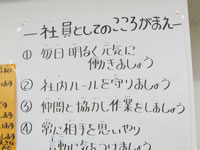 ―社員としてのこころがまえ―
① 毎日 明るく 元気に
働きましょう
② 社内ルールを守りましょう
③ 仲間と協力し作業をしましょう
④ 常に相手を思いやり
行動に気をつけましょう